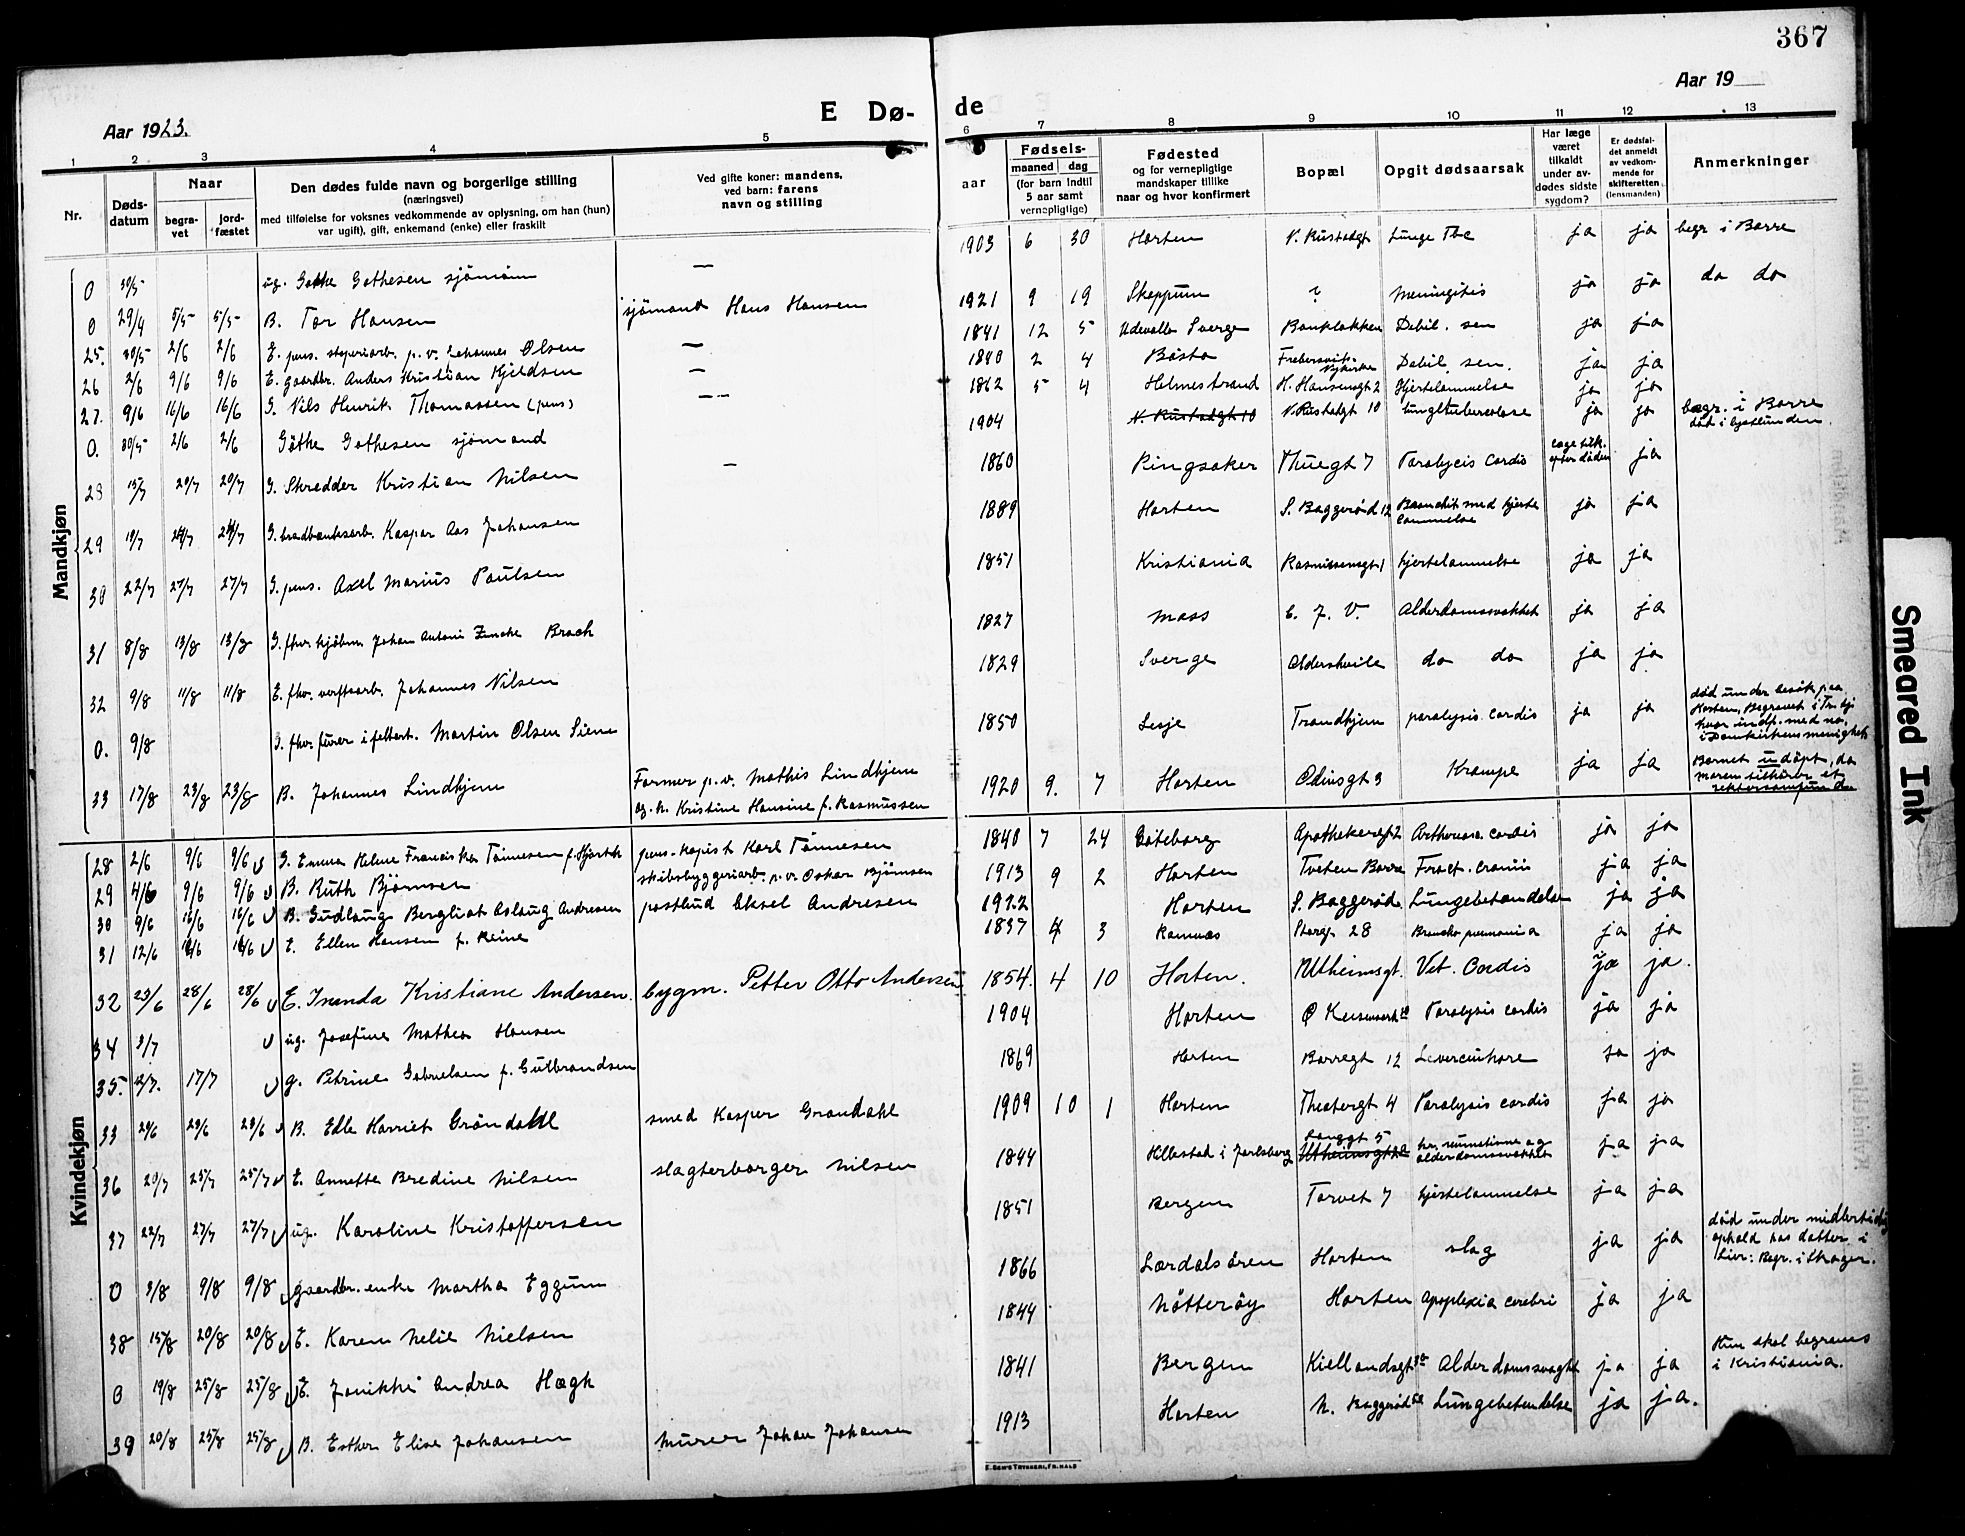 367
E Dø- de
Aar 1923.
Aar 19
1 2 3 4 5 6 7 8 9 10 11 12 13
Nr.
Døds-
datum
Naar
begra-
vet
jord-
fæstet
Den dødes fulde navn og borgerlige stilling
(næringsvei)
med tilføielse for voksnes vedkommende av oplysning, om han (hun)
var ugift), gift, enkemand (enke) eller fraskilt
Ved gifte koner: mandens,
ved barn: farens
navn og stilling
aar
Fødsels-
maaned dag
(for barn indtil
5 aar samt
vernepligtige)
Fødested
og for vernepligtige
mandskaper tillike
naar og hvor konfirmert
Bopæl
Opgit dødsaarsak
Har læge
været
tilkaldt
under av-
dødes sidste
sygdom?
Er dødsfal-
det anmeldt
av vedkom-
mende for
skifteretten
(lensmanden)
Anmerkninger
Mandkjøn
0 30/5 ug. Gøthe Gothesen sjömann — 1903 6 30 Horten N. Rustadgt Lunge Tbc ja ja begr i Borre
0 29/4 5/5 5/5 B. Tor Hansen sjömand Hans Hansen 1921 9 19 Skoppum ? Meningitis ja ja do do
25. 30/5 2/6 2/6 E. pens. p. v. Johannes Olsen — 1841 12 5 Udevalla Sverge Bankløkken Debil. sen ja ja
26 2/6 9/6 9/6 E. gaardbr. Anders Kristian Kjeldsen — 1840 2 4 Båstø Debil. sen. ja ja
27. 9/6 16/6 16/6 G. Nils Henrik Thomassen (pens) — 1862 5 4 Holmestrand H. Hansensgt 2 Hjertelammelse ja ja
0. 30/5 2/6 2/6 Göthe Gothesen sjömand 1904 N. Rustadgt 10 N. Rustadgt 10 Lungetuberculose ja ja begr. i Borre
död i lystlunden.
28 15/7 20/7 20/7 G. Skredder Kristian Nilsen — 1860 Ringsaker Thuegt 7 Paralysis Cordis læge tilk.
efter döden ja
29 19/7 24/7 24/7 G. Kaspar Aas Johansen 1889 Horten S. Baggerød 12 Bronchit med hjerte
lammelse ja ja
30 22/7 27/7 27/7 G. pens. Axel Marius Paulsen 1851 Kristiania Rasmussensgt 1 hjertelammelse ja ja
31 8/8 13/8 13/8 G. fhv. kjøbm. Johan Antoni Zincke Brock 1827 Moss C. J. V. Alderdomssvakhet ja ja
32 9/8 11/8 11/8 E. fhv. verftsarb. Johannes Nilsen 1829 Sverge Aldershvile do do ja ja
0. 9/8 G. fhv. furer i feltart. Martin Olsen Siene 1850 Lesje Trondhjem paralysis Cordis ja ja död under besøk paa
Horten, Begravet i Tr. hj
hvor indf. med no.
i Domkirkens menighet
33 17/8 23/8 23/8 B. Johannes Lindhjem Former p. v. Mathis Lindhjem
og h. Kristine Hansine f. Rasmussen 1920 9. 7 Horten Odinsgt 3 Krampe ja ja Barnet udöpt, da
moren tilhörer et
sektersamfund
Kvindekjøn
28 2/6 9/6 9/6 G. Emma Helene Franciska Tönnesen f. Hjorth pens. kopist Karl Tönnesen 1840 7 24 Göteborg Apothekergt 2 cordis ja ja
29 4/6 9/6 9/6 B. Ruth Bjørnsen skibsbyggeriarb. p. v. Oskar Bjørnsen 1913 9 2 Horten Tveten Borre Fract. cranii ja ja
30 9/6 16/6 16/6 B. Gudlaug Bergliot Aslaug Andresen postbud Aksel Andresen 1922 Horten S. Baggerød Lungebetændelse ja ja
31 12/6 16/6 16/6 E. Ellen Hansen f. Reine 1837 4 3 Ramnæs Storg. 28 Broncho pneumonia ja ja
32 23/6 28/6 28/6 E. Inanda Kristiane Andersen. bygm. Petter Otto Andersen 1854. 4 10 Horten. Utheimsgt. Vit. Cordis ja ja.
34 3/7 ug. Josefine Mathea Hansen 1904 Horten Paralysis cordis ja ja
35. 12/7. 17/7 g. Petrine Gabrielsen f. Gulbrandsen 1869 Horten Borregt 12 Levercirrhose ja ja
33 24/6 29/6 29/6 B. Edle Harriet Gröndahl smed Kasper Gröndahl 1909 10 1 Horten Theatergt 4 Paralysis cordis ja ja
36 20/7 25/7 25/7 E. Annette Bredine Nilsen slagterborger Nilsen 1844 Hillestad i Jarlsberg Langgt 5 kr. reumatisme og
alderdomssvakhet ja ja
37 22/7 27/7 27/7 ug. Karoline Kristoffersen 1851 Bergen Torvet 7 hjertelammelse ja ja
0 3/8 9/8 9/8 gaardbr. enke Martha Eggum 1866 Lærdalsören Horten slag ja ja död under midlertidig
ophold hos datter i
Lier: Begr. i
38 15/8 20/8 20/8 E. Karen Nelie Nielsen 1844 Nötteröy Horten Apoplexia cerebri ja ja
0 19/8 25/8 25/8 E. Jonikke Andrea Høgh 1841 Bergen Kiellandsgt Alderdomssvaghet ja ja Hun skal begraves
i Kristiania.
39 20/8 25/8 25/8 B. Esther Elise Johansen murer Johan Johansen 1913 Horten N. Baggerød Lungebetændelse ja ja.
E. SEM'S TRYKKERI, FR.HALD
Smeared Ink